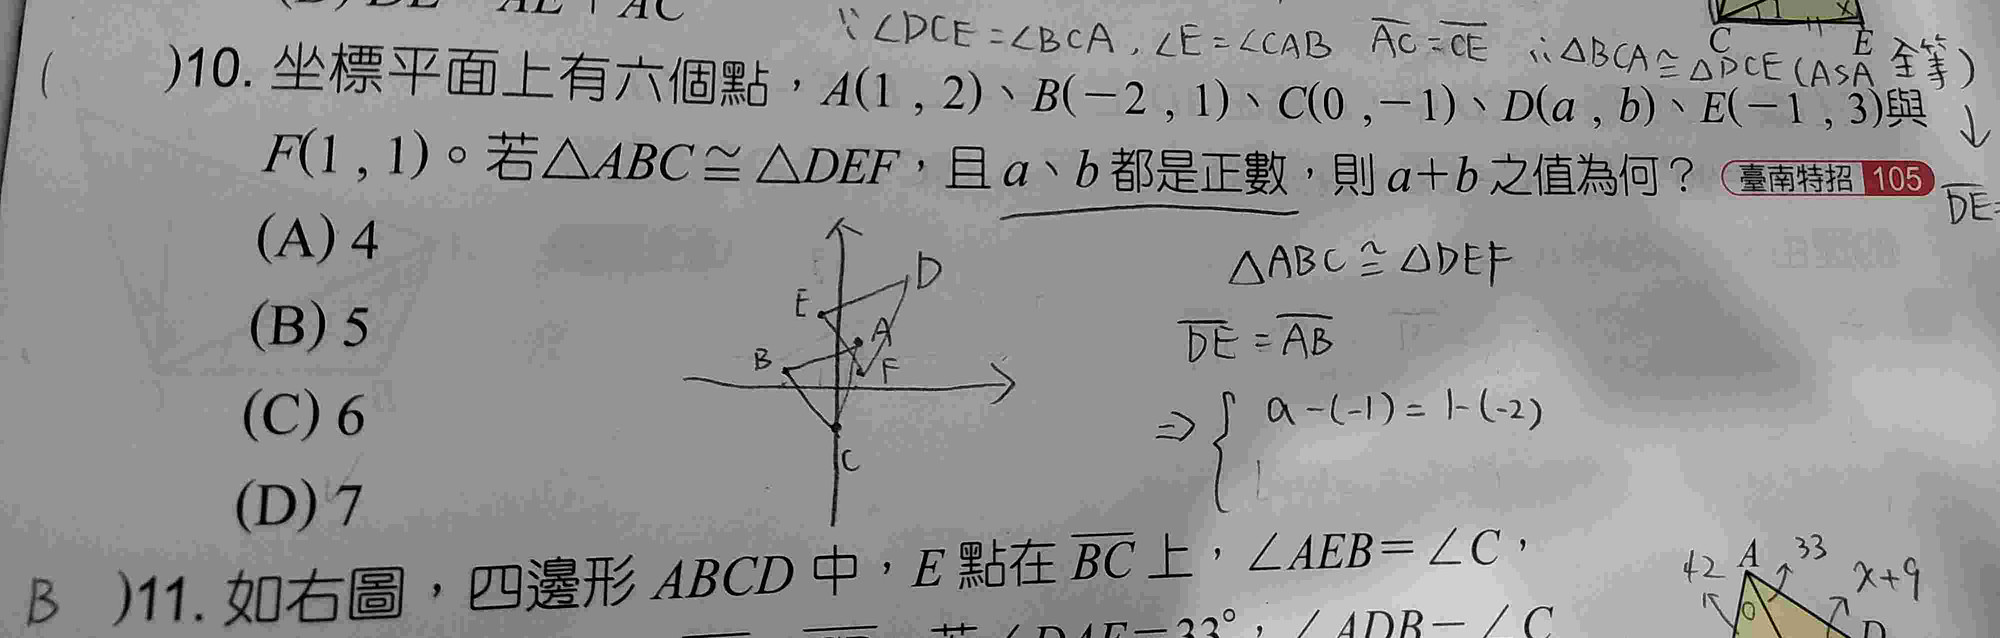 ∵∠DCE=∠BCA,∠E=∠CAB AC=CE ∴△BCA≅△DCE(ASA 全等)
C E
)10. 坐標平面上有六個點，A(1 , 2)、B(−2 , 1)、C(0 ,−1)、D(a , b)、E(−1 , 3)與
F(1 , 1)。若△ABC≅△DEF，且 a、b 都是正數，則 a+b 之值為何？ 臺南特招 105
DE=
(A) 4
(B) 5
(C) 6
(D) 7
D
E
A
B
F
C
△ABC≅△DEF
DE=AB
⇒{ a-(-1)=1-(-2)
B )11. 如右圖，四邊形 ABCD 中，E 點在 BC 上，∠AEB=∠C，
42 A 33 x+9
D